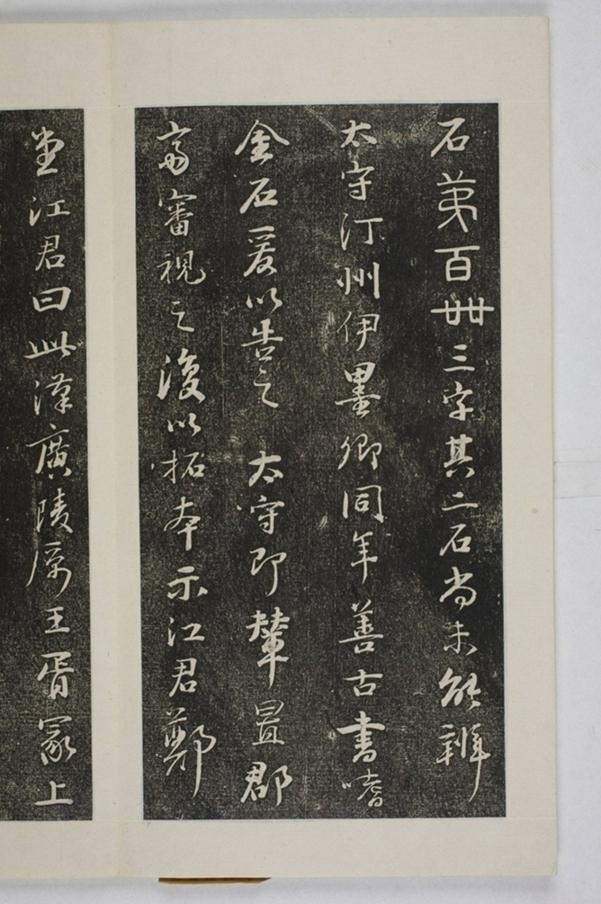 石第百卌三字其二石尚未能辨
太守汀州伊墨卿同年善古書嗜
金石爰以告之　太守即輦置郡
齋審視之復以拓本示江君鄭
堂江君曰此漢廣陵厲王胥冢上